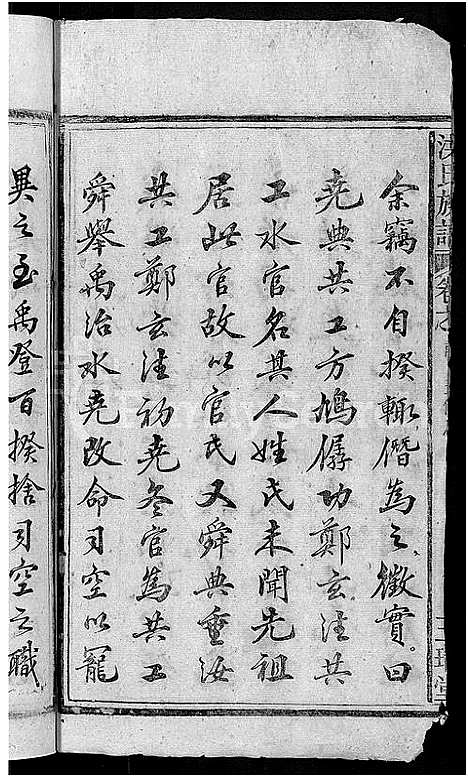 余竊不自揆輒僭為之徵實曰
堯典共工方鳩僝功鄭玄注共
工水官名其人姓氏未聞先祖
居此官故以官氏又舜典垂汝
共工鄭玄注初堯冬官為共工
舜舉禹治水堯改命司空以寵
異之至禹登百揆捨司空之職
氏族譜
卷